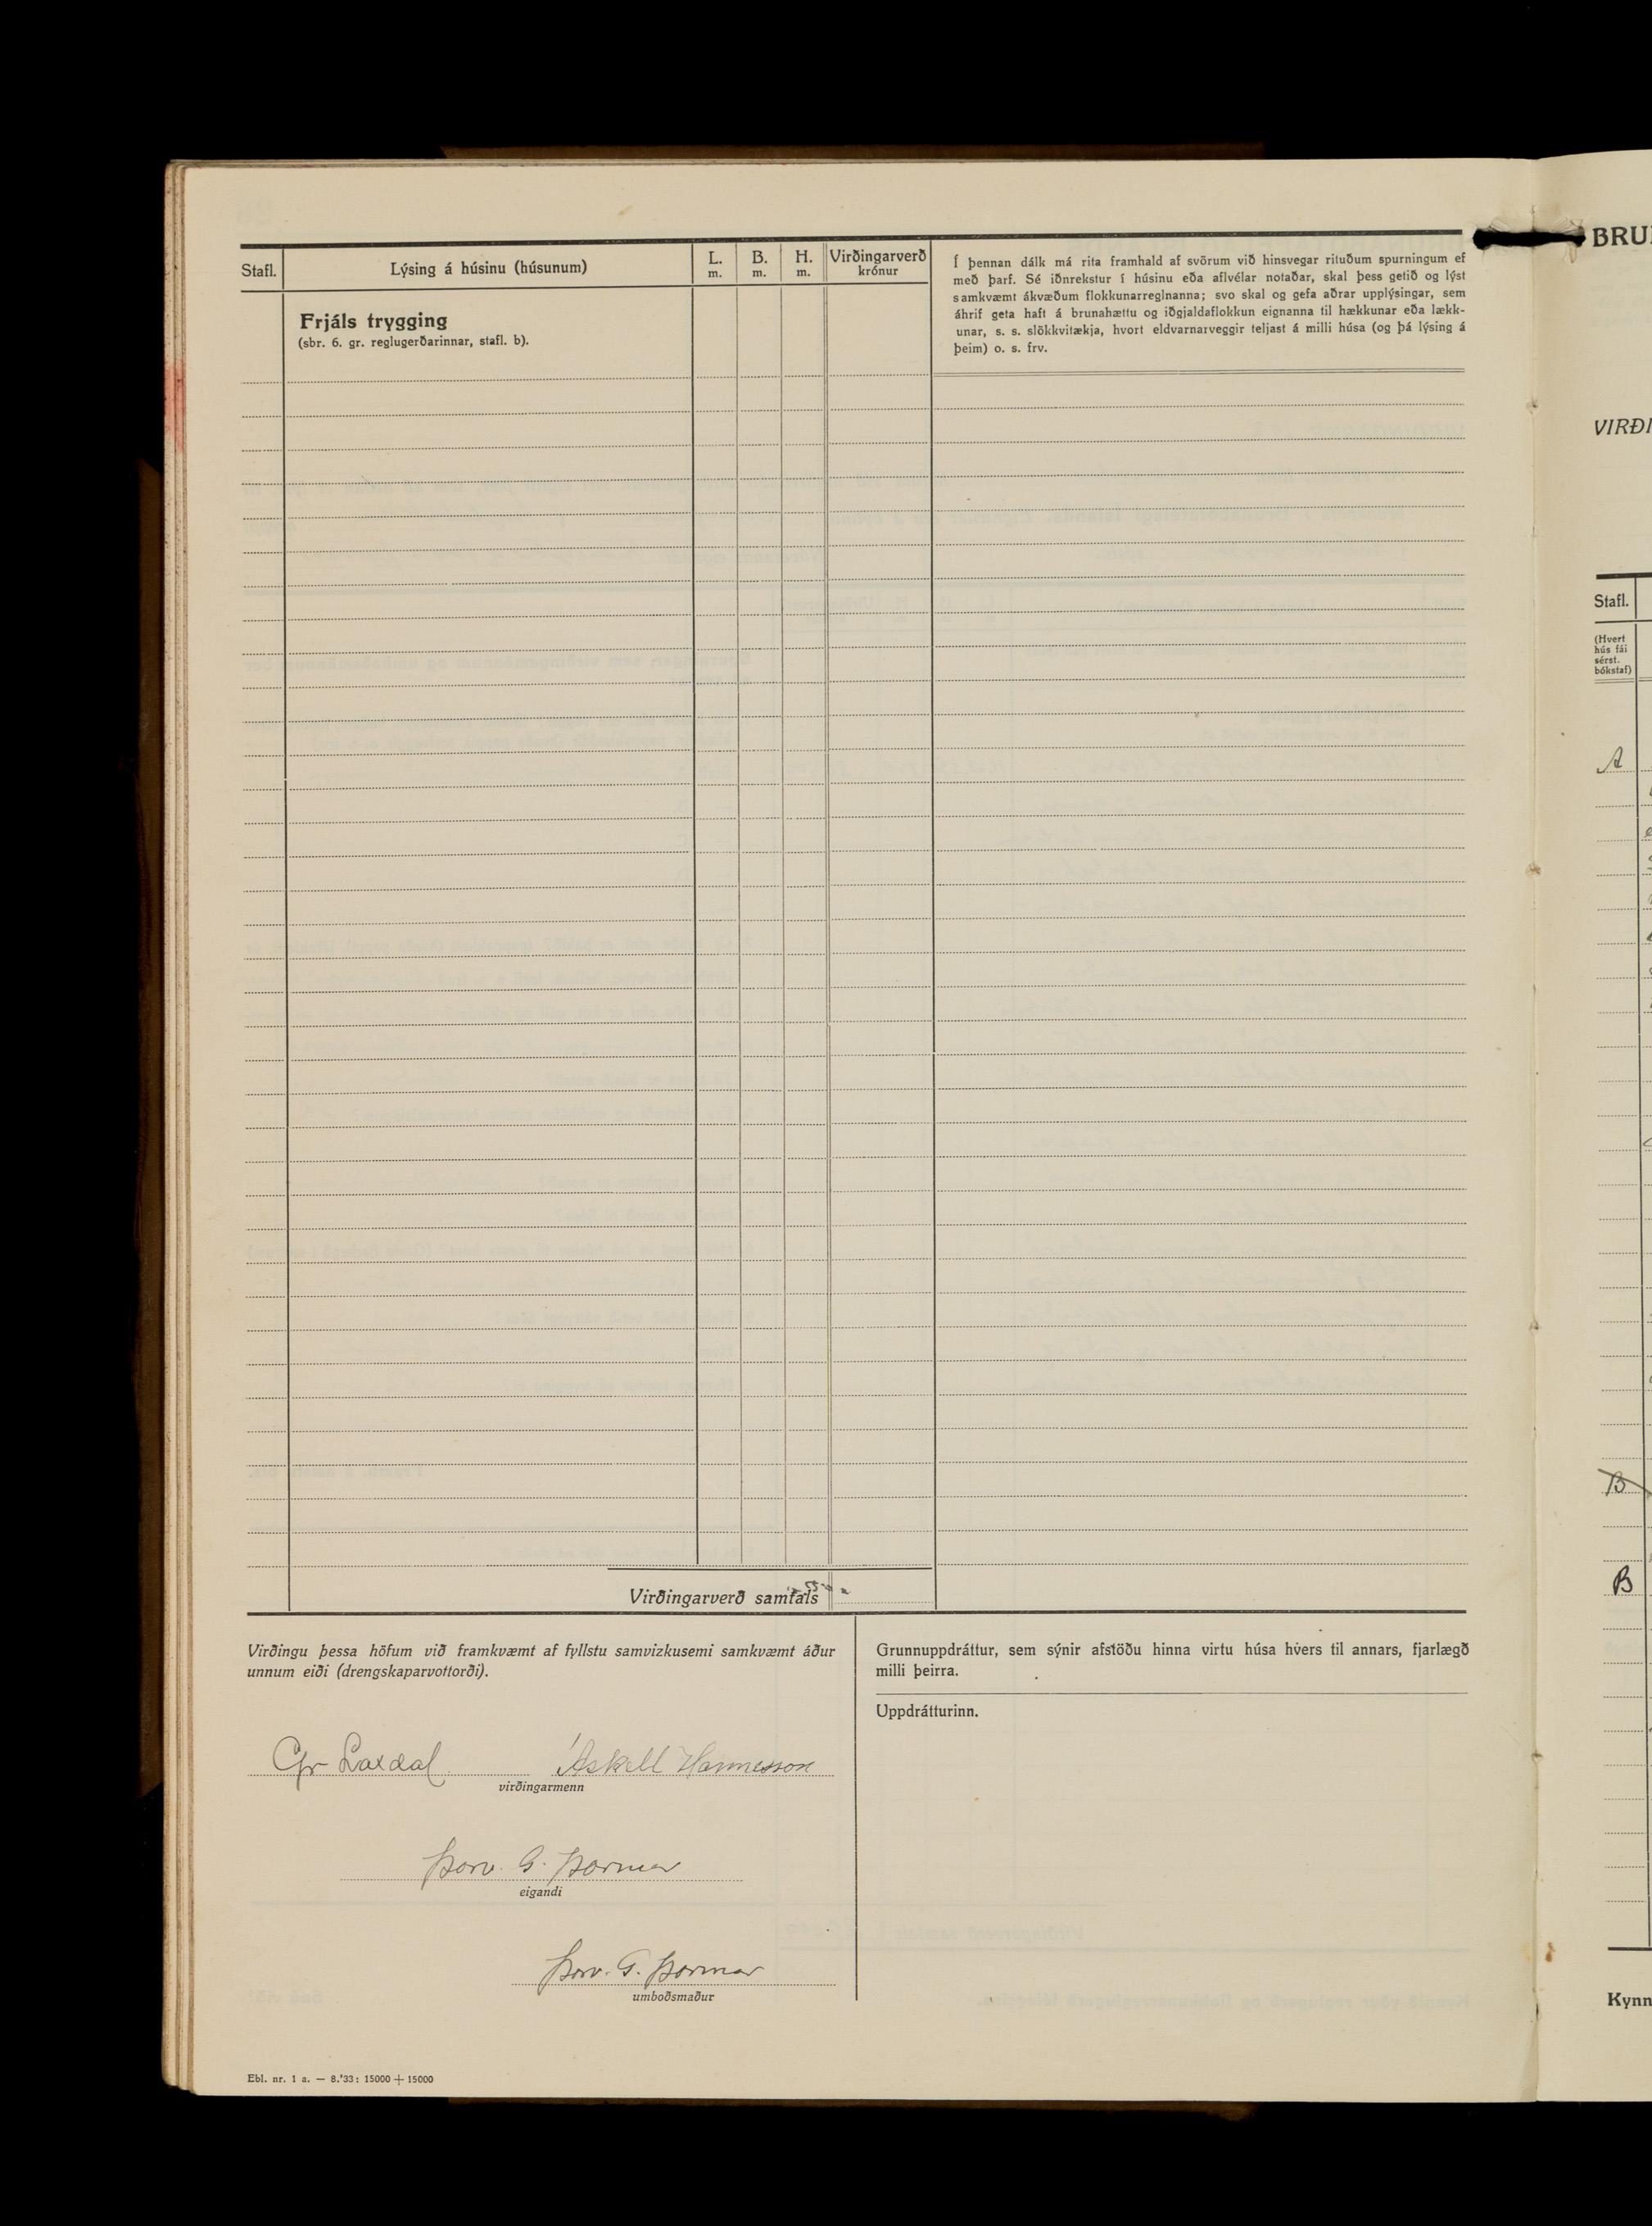 Stafl.
Lýsing á húsinu (húsunum)
L.
m.
B.
m.
H.
m.
Virðingarverð
krónur
Frjáls trygging
(sbr. 6. gr. reglugerðarinnar, stafl. b).
Í þennan dálk má rita framhald af svörum við hinsvegar rituðum spurningum ef
með þarf. Sé iðnrekstur í húsinu eða aflvélar notaðar, skal þess getið og lýst
samkvæmt ákvæðum flokkunarreglnanna; svo skal og gefa aðrar upplýsingar, sem
áhrif geta haft á brunahættu og iðgjaldaflokkun eignanna til hækkunar eða lækk-
unar, s. s. slökkvitækja, hvort eldvarnarveggir teljast á milli húsa (og þá lýsing á
þeim) o. s. frv.
Virðingarverð samtals
Virðingu þessa höfum við framkvæmt af fyllstu samvizkusemi samkvæmt áður
unnum eiði (drengskaparvottorði).
Gr Laxdal Áskell Hannesson
virðingarmenn
Þorv. G. Þormar
eigandi
Þorv. G. Þormar
umboðsmaður
Grunnuppdráttur, sem sýnir afstöðu hinna virtu húsa hvers til annars, fjarlægð
milli þeirra.
Uppdrátturinn.
Ebl. nr. 1 a. — 8.'33: 15000 + 15000
BRU
VIRÐI
Stafl.
(Hvert
hús fái
sérst.
bókstaf)
A
B
B
Kynn